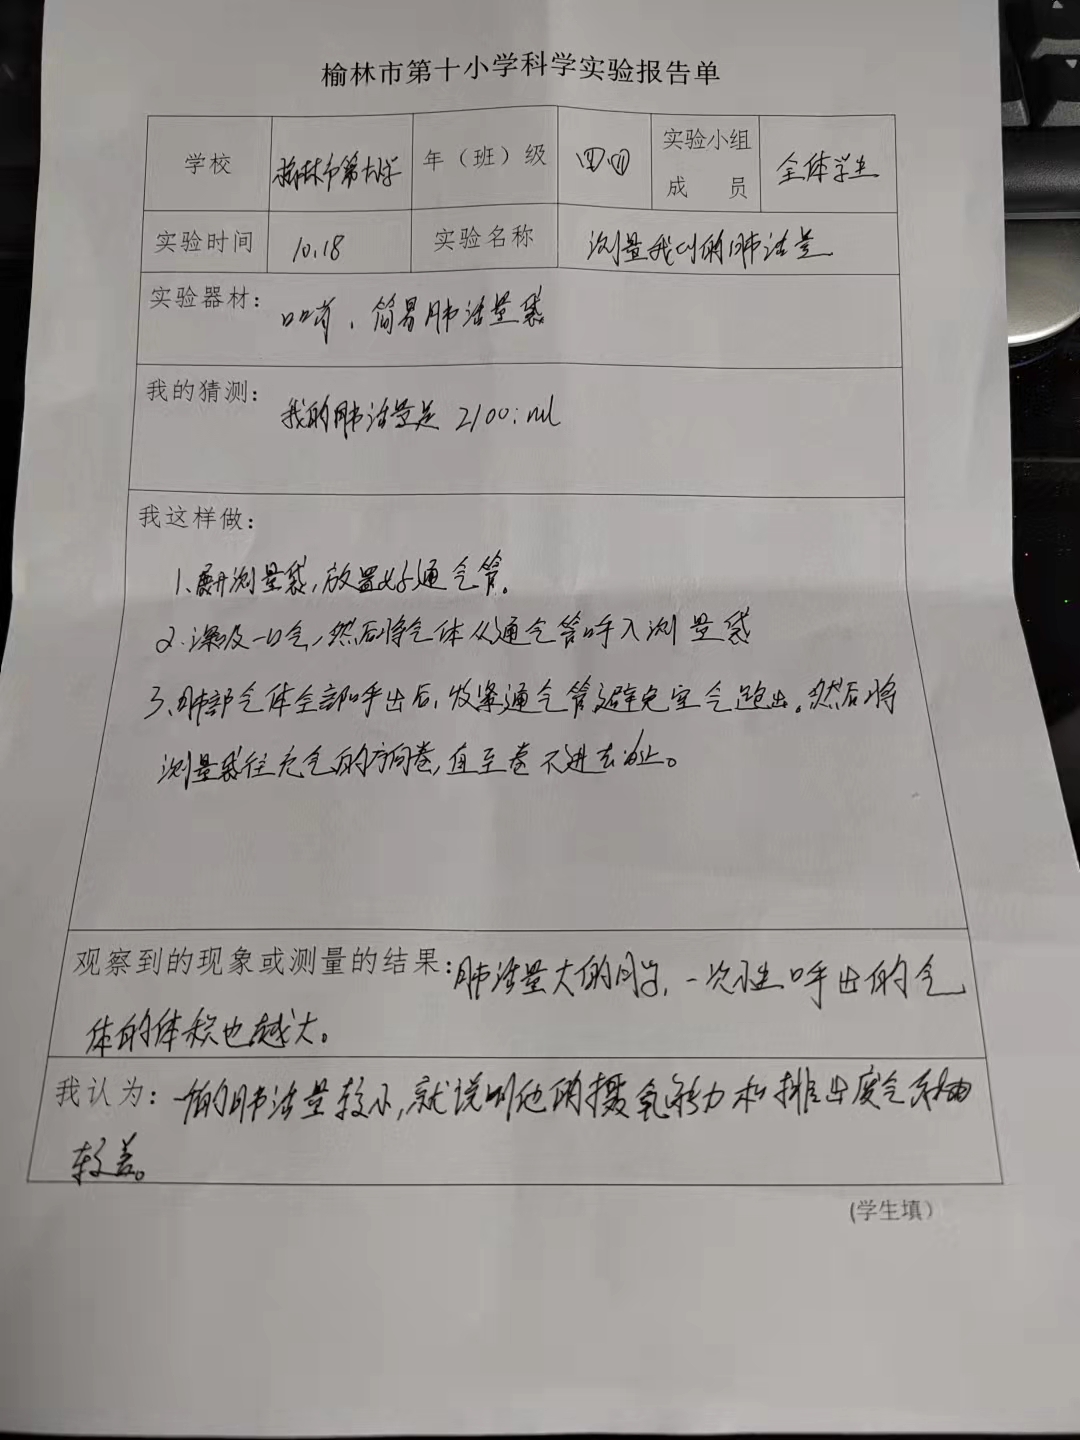 榆林市第十小学科学实验报告单
学校 榆林市第十小学 年（班）级 四四 实验小组成员 全体学生
实验时间 10.18 实验名称 测量我们的肺活量
实验器材： 口哨、简易肺活量袋
我的猜测： 我的肺活量是 2100:ml
我这样做：
1、展开测量袋，放置好通气管。
2. 深吸一口气，然后将气体从通气管呼入测量袋
3、肺部气体全部呼出后，收紧通气管避免空气跑出。然后将
测量袋往充气的方向卷，直至卷不进去为止。
观察到的现象或测量的结果：肺活量大的同学，一次性呼出的气
体的体积也越大。
我认为： 的肺活量较小，就说明他的摄氧能力和排出废气
较差。
(学生填）